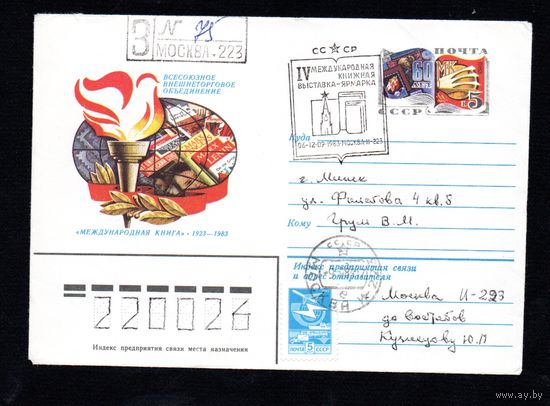 З N 75
МОСКВА-223
ВСЕСОЮЗНОЕ
ВНЕШНЕТОРГОВОЕ
ОБЪЕДИНЕНИЕ
«МЕЖДУНАРОДНАЯ КНИГА» · 1923—1983
СССР
IV МЕЖДУНАРОДНАЯ
КНИЖНАЯ
ВЫСТАВКА-ЯРМАРКА
06-12·09·1983·МОСКВА·И-223
ПОЧТА
60
ЛЕТ
МК
5
СССР
Куда
г. Минск
ул. Филатова 4 кв. 5
Кому Грум В. М.
Индекс предприятия связи
и адрес отправителя
Москва И-223
до востреб
Кузнецову Ю.П
СССР
МОСКВА
ПОЧТА 5 СССР
220026
Индекс предприятия связи места назначения
MARX
LENIN
www.ay.by